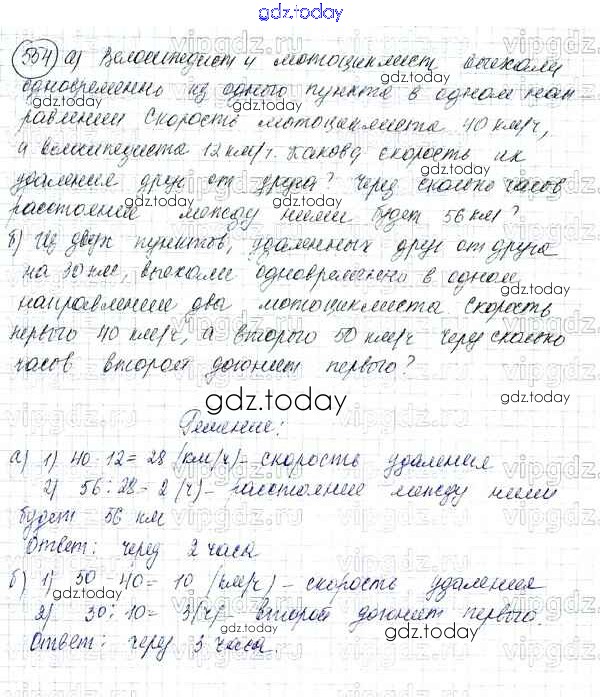 gdz.today
554) а) Велосипедист и мотоциклист выехали
одновременно из одного пункта в одном нап
равлении Скорость мотоциклиста 40 км/ч,
а велосипедиста 12 км/ч. Какова скорость их
удаления друг от друга? Через сколько часов
расстояние между ними будет 56 км?
б) Из двух пунктов, удаленных друг от друга
на 30 км, выехали одновременно в одном
направлении два мотоциклиста Скорость
первого 40 км/ч, а второго 50 км/ч Через сколько
часов второй догонит первого?
gdz.today
Решение:
а) 1) 40-12=28 (км/ч)- скорость удаления
2) 56:28=2 (ч)- расстояние между ними
будет 56 км
Ответ: через 2 часа
б) 1) 50-40= 10 (км/ч) - скорость удаления
2) 30:10= 3(ч) второй догонит первого.
Ответ: через 3 часа.
gdz.today